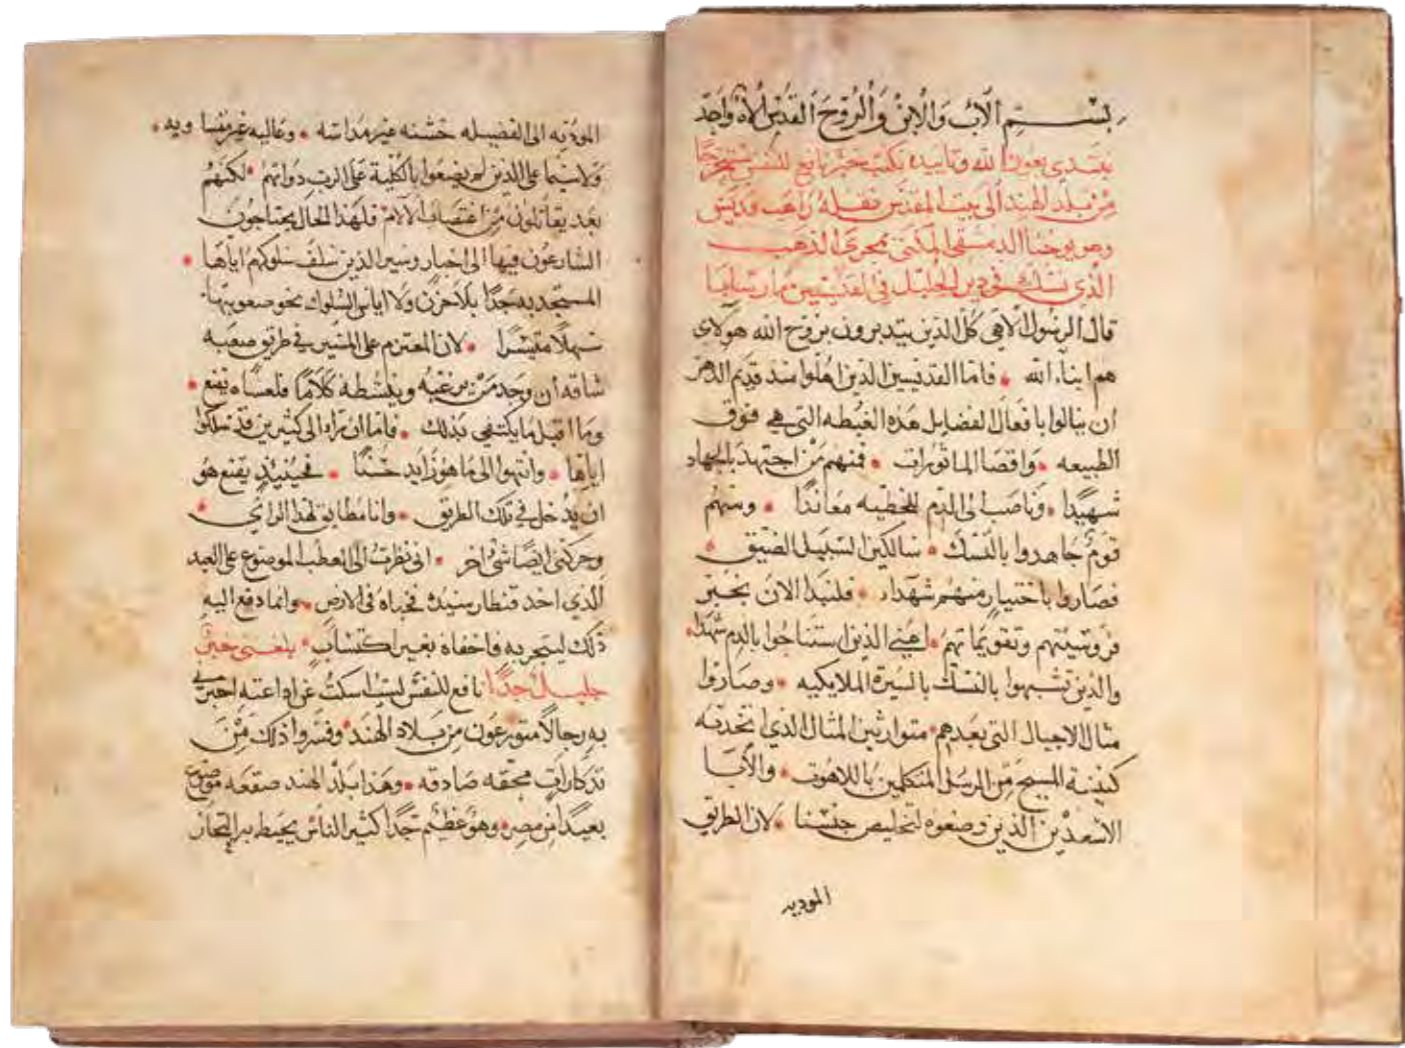 بسم الاب والابن والروح القدس لاه واحد
نبتدي بعون الله وتاييده نكتب خبر نافع للنفس مستخرجا
من بلد الهند الى بيت المقدس نقله راهب قديس
وهو يوحنا الدمشقي المكنى بمجرى الذهب
الذي نسك في دير الجليل في القديسين مار سابا
قال الرسول الالاهي كل الذين يتدبرون بروح الله هولاى
هم ابناء الله • فاما القديسين الذين اهلوا منذ قديم الدهر
ان ينالوا بافعال الفضايل هذه الغبطه التي هي فوق
الطبيعه • واقصا الماثورات • فمنهم من اجتهد بالجهاد
شهيدا • وناصب الى الدم للخطيه معاندا • ومنهم
قوم جاهدوا بالنسك • سالكين السبيل الضيق •
فصاروا باختيار منهم شهداء • فلنبدا الان بخبر
فروسيتهم وتقويماتهم • اعني الذين استناحوا بالدم شهدا •
والذين تشبهوا بالنسك بالسيرة الملايكيه • وصاروا
مثال الاجيال التي بعدهم • متوارثين المثال الذي اتخدته
كنيسة المسيح من الرسل المتكلمين باللاهوت • والابا
الاسعدين الذين وضعوه لتخليص جنسنا • لان الطريق
الموديه
الموديه الى الفضيله خشنه غير مداسه • وعاليه غير
ولاسيما على الذين لم يضعوا بالكلية على الرب دواتهم • لكنهم
بعد يقاتلون من اغتصاف الالام فلهذا الحال يحتاجون
الشارعون فيها الى اخبار وسير الذين سلف سلوكهم اياها •
المستجد به جدا بلا حزن ولا اياس السلوك نحو صعوبتها •
سهلا متيسرا • لان المعتزم على المسير في طريق صعبه
شاقه ان وجد من يرغبه وينشطه كلاما فلعساه يقنع •
وما اقبل ما يكتفي بذلك • فاما ان تراه الى كثيرين قد سلكوا
اياها • وانتهوا الى ما هو زايد حسنا • فحينيد يقنع هو
ان يدخل في تلك الطريق • وانا مطابق لهذا الراي •
وحركني ايضا شي اخر • اني نظرت الى العطب الموضوع على العبد
الذي اخد قنطار سيده فخباه في الارض • وانما دفع اليه
ذلك ليتجر به فاخفاه بغير اكتساب • بلغني خبر
جليل جدا نافع للنفس لست اسكت عن اداعته اخبرني
به رجالا متورعون من بلاد الهند • وفسروا ذلك من
تدكارات محققه صادقه • وهذا بلد الهند صقعه موضوع
بعيدا من مصر • وهو عظيم جدا كثير الناس يحيط به البحار